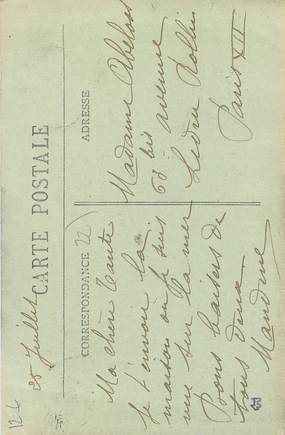 25 Juillet
CARTE POSTALE
CORRESPONDANCE
22
Ma chère tante
Je t'envoie la
maison où je suis
vue sur la mer
Bons baisers de
tous deux
ADRESSE
Madame
63 bis avenue
Ledru Rollin
Paris XII